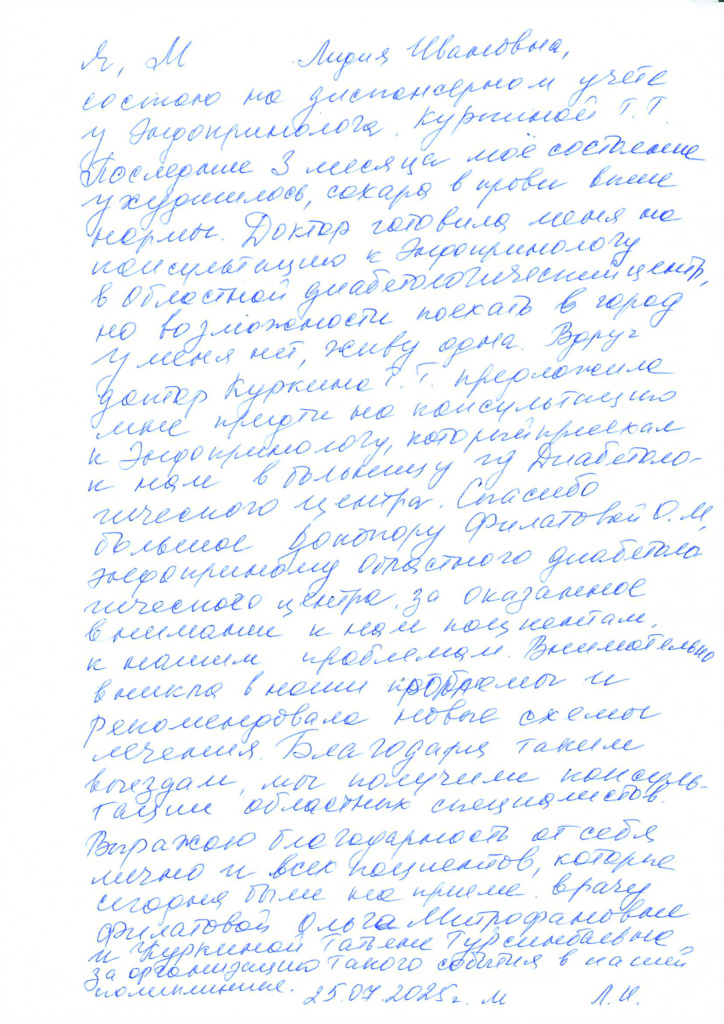 Я, М Лидия Ивановна,
состою на диспансерном учете
у Эндокринолога. Куркиной Т.Т.
Последние 3 месяца моё состояние
ухудшилось, сахара в крови выше
нормы. Доктор готовила меня на
консультацию к Эндокринологу
в Областной диабетологический центр,
но возможности поехать в город
у меня нет, живу одна. Вдруг
доктор Куркина Т.Т. предложила
мне придти на консультацию
к Эндокринологу, который приехал
к нам в больницу из Диабетоло-
гического центра. Спасибо
большое Доктору Филатовой О.М,
эндокринологу Областного диабетоло
гического центра, за оказанное
внимание к нам пациентам,
к нашим проблемам. Внимательно
вникла в наши проблемы и
рекомендовала новые схемы
лечения. Благодаря таким
выездам, мы получили консуль-
тации областных специалистов.
Выражаю благодарность от себя
лично и всех пациентов, которые
сегодня были на приеме. врачу
Филатовой Ольга Митрофановне
и Куркиной Татьяне Турсинбаевне,
за организацию такого события в нашей
поликлинике.
25.07.2025г. М Л.И.